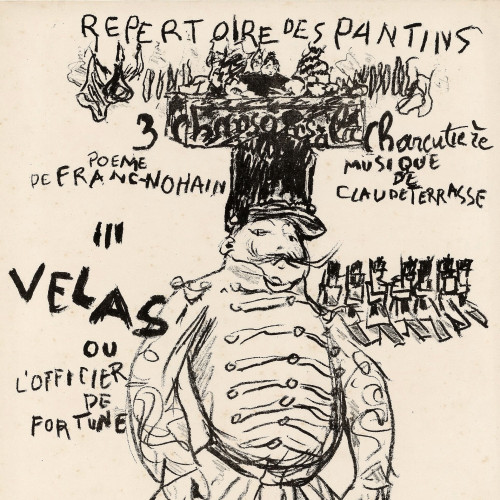 REPERTOIRE DES PANTINS
3 Chansons à la Charcutière
POEME
DE FRANC-NOHAIN
MUSIQUE
DE
CLAUDE TERRASSE
III
VELAS
OU
L'OFFICIER
DE
FORTUNE